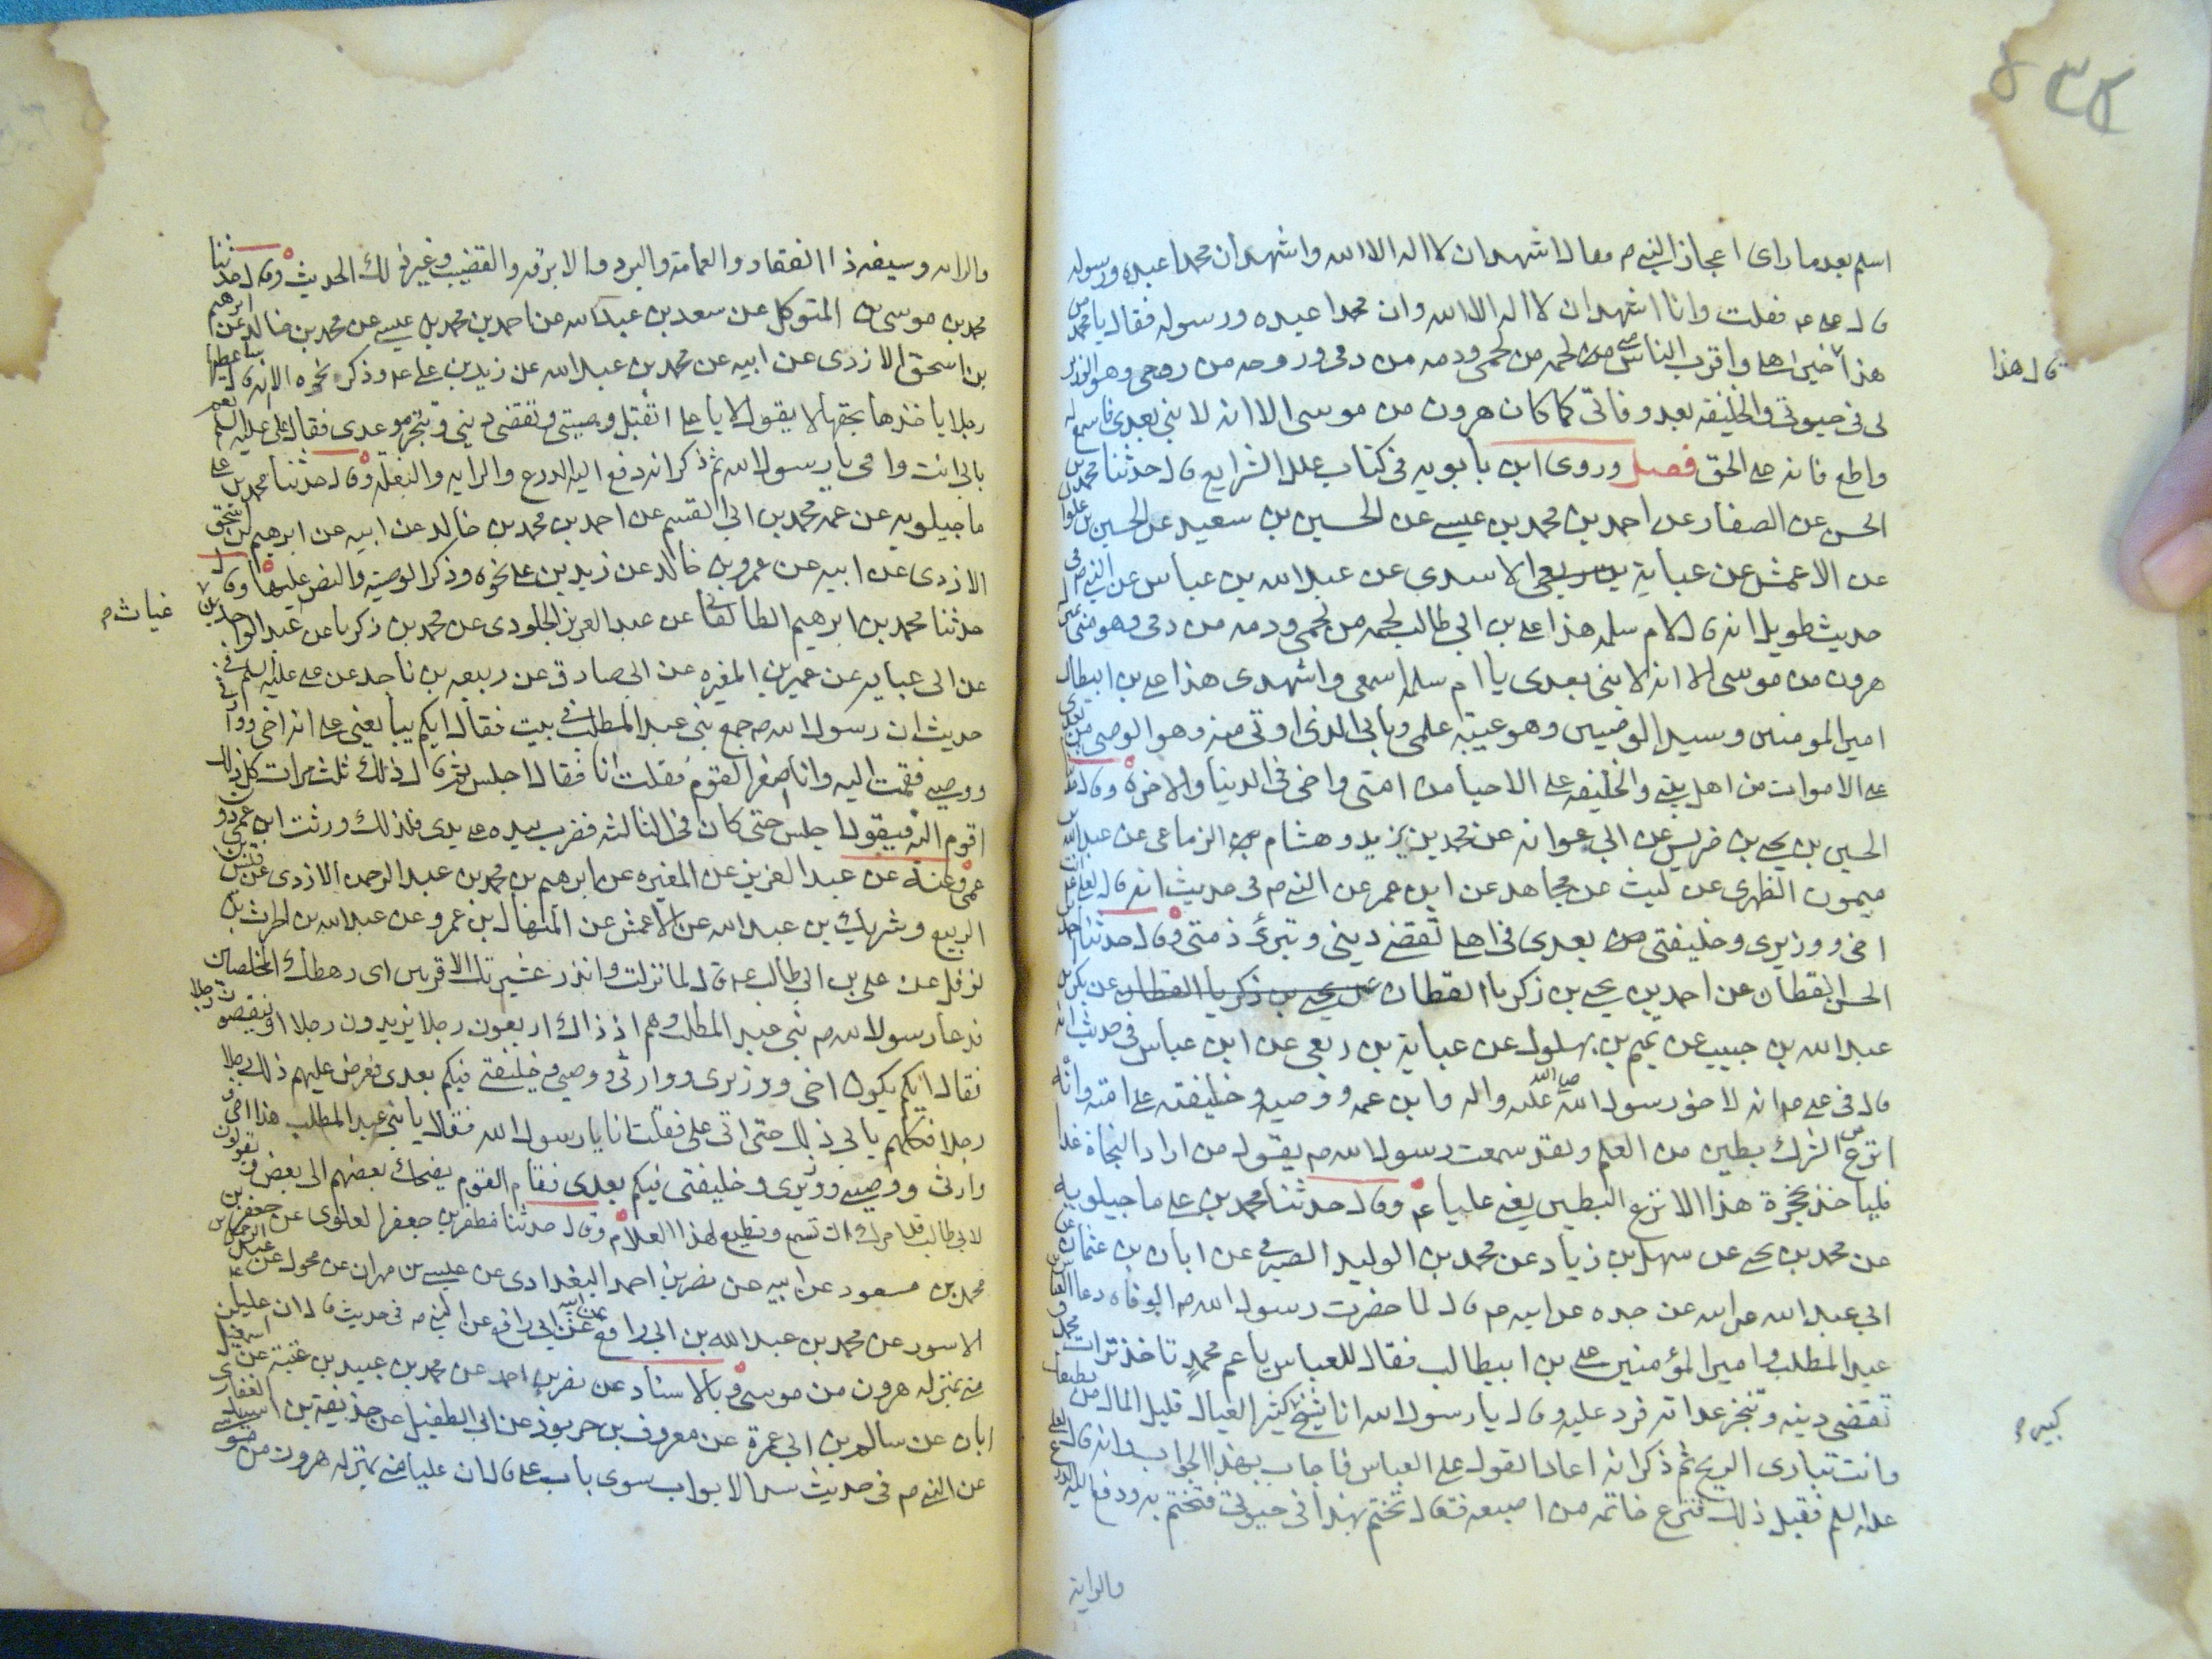 اسلم بعد ما راى اعجاز النبى م فقال اشهد ان لا اله الا الله واشهد ان محمدا عبده ورسوله
قال على ع فقلت وانا اشهد ان لا اله الا الله وان محمدا عبده ورسوله فقال يا محمد من
هذا خير اهلى واقرب الناس منى لحمه من لحمى ودمه من دمى وروحه من روحى وهو الوزير
قال هذا
لى فى حيوتى والخليفة بعد وفاتى كما كان هرون من موسى الا انه لا نبى بعدى فاسمع له
واطع فانه على الحق فصل وروى ابن بابويه فى كتاب علل الشرايع قال حدثنا محمد بن
الحسن عن الصفار عن احمد بن محمد بن عيسى عن الحسين بن سعيد عن الحسين بن علوان
عن الاعمش عن عباية بن ربعى الاسدى عن عبد الله بن عباس عن النبى م فى
حديث طويل انه قال لام سلمه هذا على بن ابى طالب لحمه من لحمى ودمه من دمى وهو منى
هرون من موسى الا انه لا نبى بعدى يا ام سلمه اسمعى واشهدى هذا على بن ابيطالب
امير المومنين وسيد الوصيين وهو عيبة علمى وبابى الذى اوتى منه وهو الوصى من بعدى
على الاموات من اهل بيتى والخليفه على الاحيا من امتى واخى فى الدنيا والاخره وقال
الحسين بن يحيى بن ضريس عن ابى عوانه عن محمد بن يزيد وهشام الزماعى عن عبد الله
ميمون الطهرى عن ليث عن مجاهد عن ابن عمر عن النبى م فى حديث انه قال لعلى
اخى ووزيرى وخليفتى من بعدى فى اهلى تقضى دينى وتبرئ ذمتى وقال حدثنا احمد
الحسن القطان عن احمد بن يحيى بن زكريا القطان عن يحيى بن زكريا القطان عن بكر بن
عبد الله بن حبيب عن تميم بن بهلول عن عباية بن ربعى عن ابن عباس فى حديث انه
قال فى على ع انه لاخو رسول الله صلى الله عليه واله وابن عمه ووصيه وخليفته على امته وانه
انزع من الشرك بطين من العلم ولقد سمعت رسول الله م يقول من اراد النجاة غدا
فلياخذ بحجزة هذا الانزع البطين يعنى عليا ع وقال حدثنا محمد بن على ماجيلويه
عن محمد بن يحيى عن سهل بن زياد عن محمد بن الوليد الصيرفى عن ابان بن عثمان عن
ابى عبد الله عن ابيه عن جده عن ابيه م قال لما حضرت رسول الله م الوفاه دعا العباس بن
عبد المطلب وامير المؤمنين على بن ابيطالب فقال للعباس يا عم محمد تاخذ تراث محمد و
تقضى دينه وتنجز عداته فرد عليه وقال يا رسول الله انا شيخ كثير العيال قليل المال من يطيقك
كبير
وانت تبارى الريح ثم ذكر انه اعاد القول على العباس فاجاب بهذا الجواب وانه قال
عليه السلم فقبل ذلك فنزع خاتمه من اصبعه فقال تختم بهذا فى حيوتى فتختم به ودفع اليه الدرع
والراية
والرايه وسيفه ذا الفقار والعمامة والبرد والابرقه والقضيب وغير ذلك الحديث وقال حدثنا
محمد بن موسى بن المتوكل عن سعد بن عبد الله عن احمد بن محمد بن عيسى عن محمد بن خالد عن ابرهيم
بن اسحق الازدى عن ابيه عن محمد بن عبد الله عن زيد بن على ع وذكر نحوه الا انه قال ساعطيها
رجلا ياخذها بحقها لا يقول لا يا على اتقبل وصيتى وتقضى دينى وتنجز موعدى فقال على عليه السلم نعم
بابى انت وامى يا رسول الله ثم ذكر انه دفع اليه الدرع والرايه والبغله وقال حدثنا محمد بن على
ماجيلويه عن عمه محمد بن ابى القسم عن احمد بن محمد بن خالد عن ابيه عن ابرهيم بن اسحق
الازدى عن ابيه عن عمرو بن خالد عن زيد بن على نحوه وذكر الوصيه والنص عليهما وقال
حدثنا محمد بن ابرهيم الطالقانى عن عبد العزيز الجلودى عن محمد بن زكريا عن عبد الواحد بن
غياث م
عن ابى عبايه عن عمر بن المغيره عن ابى صادق عن ربيعه بن ناجد عن على عليه السلم فى
حديث ان رسول الله م جمع بنى عبد المطلب فى بيت فقال ايكم يبايعنى على انه اخى ووارثى
ووصيى فقمت اليه وانا اصغر القوم فقلت انا فقال اجلس ثم قال ذلك ثلث مرات كل ذلك
اقوم اليه فيقول اجلس حتى كان فى الثالثه فضرب بيده على يدى فلذلك ورثت ابن عمى دون
عمى وعنه عن عبد العزيز عن المغيره عن ابرهيم بن محمد بن عبد الرحمن الازدى عن قيس بن
الربيع وشريك بن عبد الله عن الاعمش عن المنهال بن عمرو عن عبد الله بن الحرث بن
نوفل عن على بن ابى طالب ع قال لما نزلت وانذر عشيرتك الاقربين اى رهطك المخلصين
فدعا رسول الله م بنى عبد المطلب وهم اذ ذاك اربعون رجلا يزيدون رجلا او ينقصون رجلا
فقال ايكم يكون اخى ووزيرى ووارثى ووصيى وخليفتى فيكم بعدى فعرض عليهم ذلك رجلا
رجلا فكلهم يابى ذلك حتى اتى على فقلت انا يا رسول الله فقال يا بنى عبد المطلب هذا اخى و
وارثى ووصيى ووزيرى وخليفتى فيكم بعدى فقام القوم يضحك بعضهم الى بعض ويقولون
لابى طالب قد امرك ان تسمع وتطيع لهذا الغلام وقال حدثنا مظفر بن جعفر العلوى عن جعفر بن
محمد بن مسعود عن ابيه عن نصر بن احمد البغدادى عن عيسى بن مهران عن مخول عن عبد الرحمن بن
الاسود عن محمد بن عبد الله بن ابى رافع عن ابيه عن ابى رافع عن النبى م فى حديث قال ان عليا
منى بمنزله هرون من موسى وبالاسناد عن نصر بن احمد عن محمد بن عبيد بن عتبة عن اسمعيل
ابان عن سالم بن ابى عمرة عن معروف بن خربوذ عن ابى الطفيل عن حذيفة بن اسيد الغفارى
عن النبى م فى حديث سد الابواب سوى باب على قال ان عليا منى بمنزله هرون من موسى